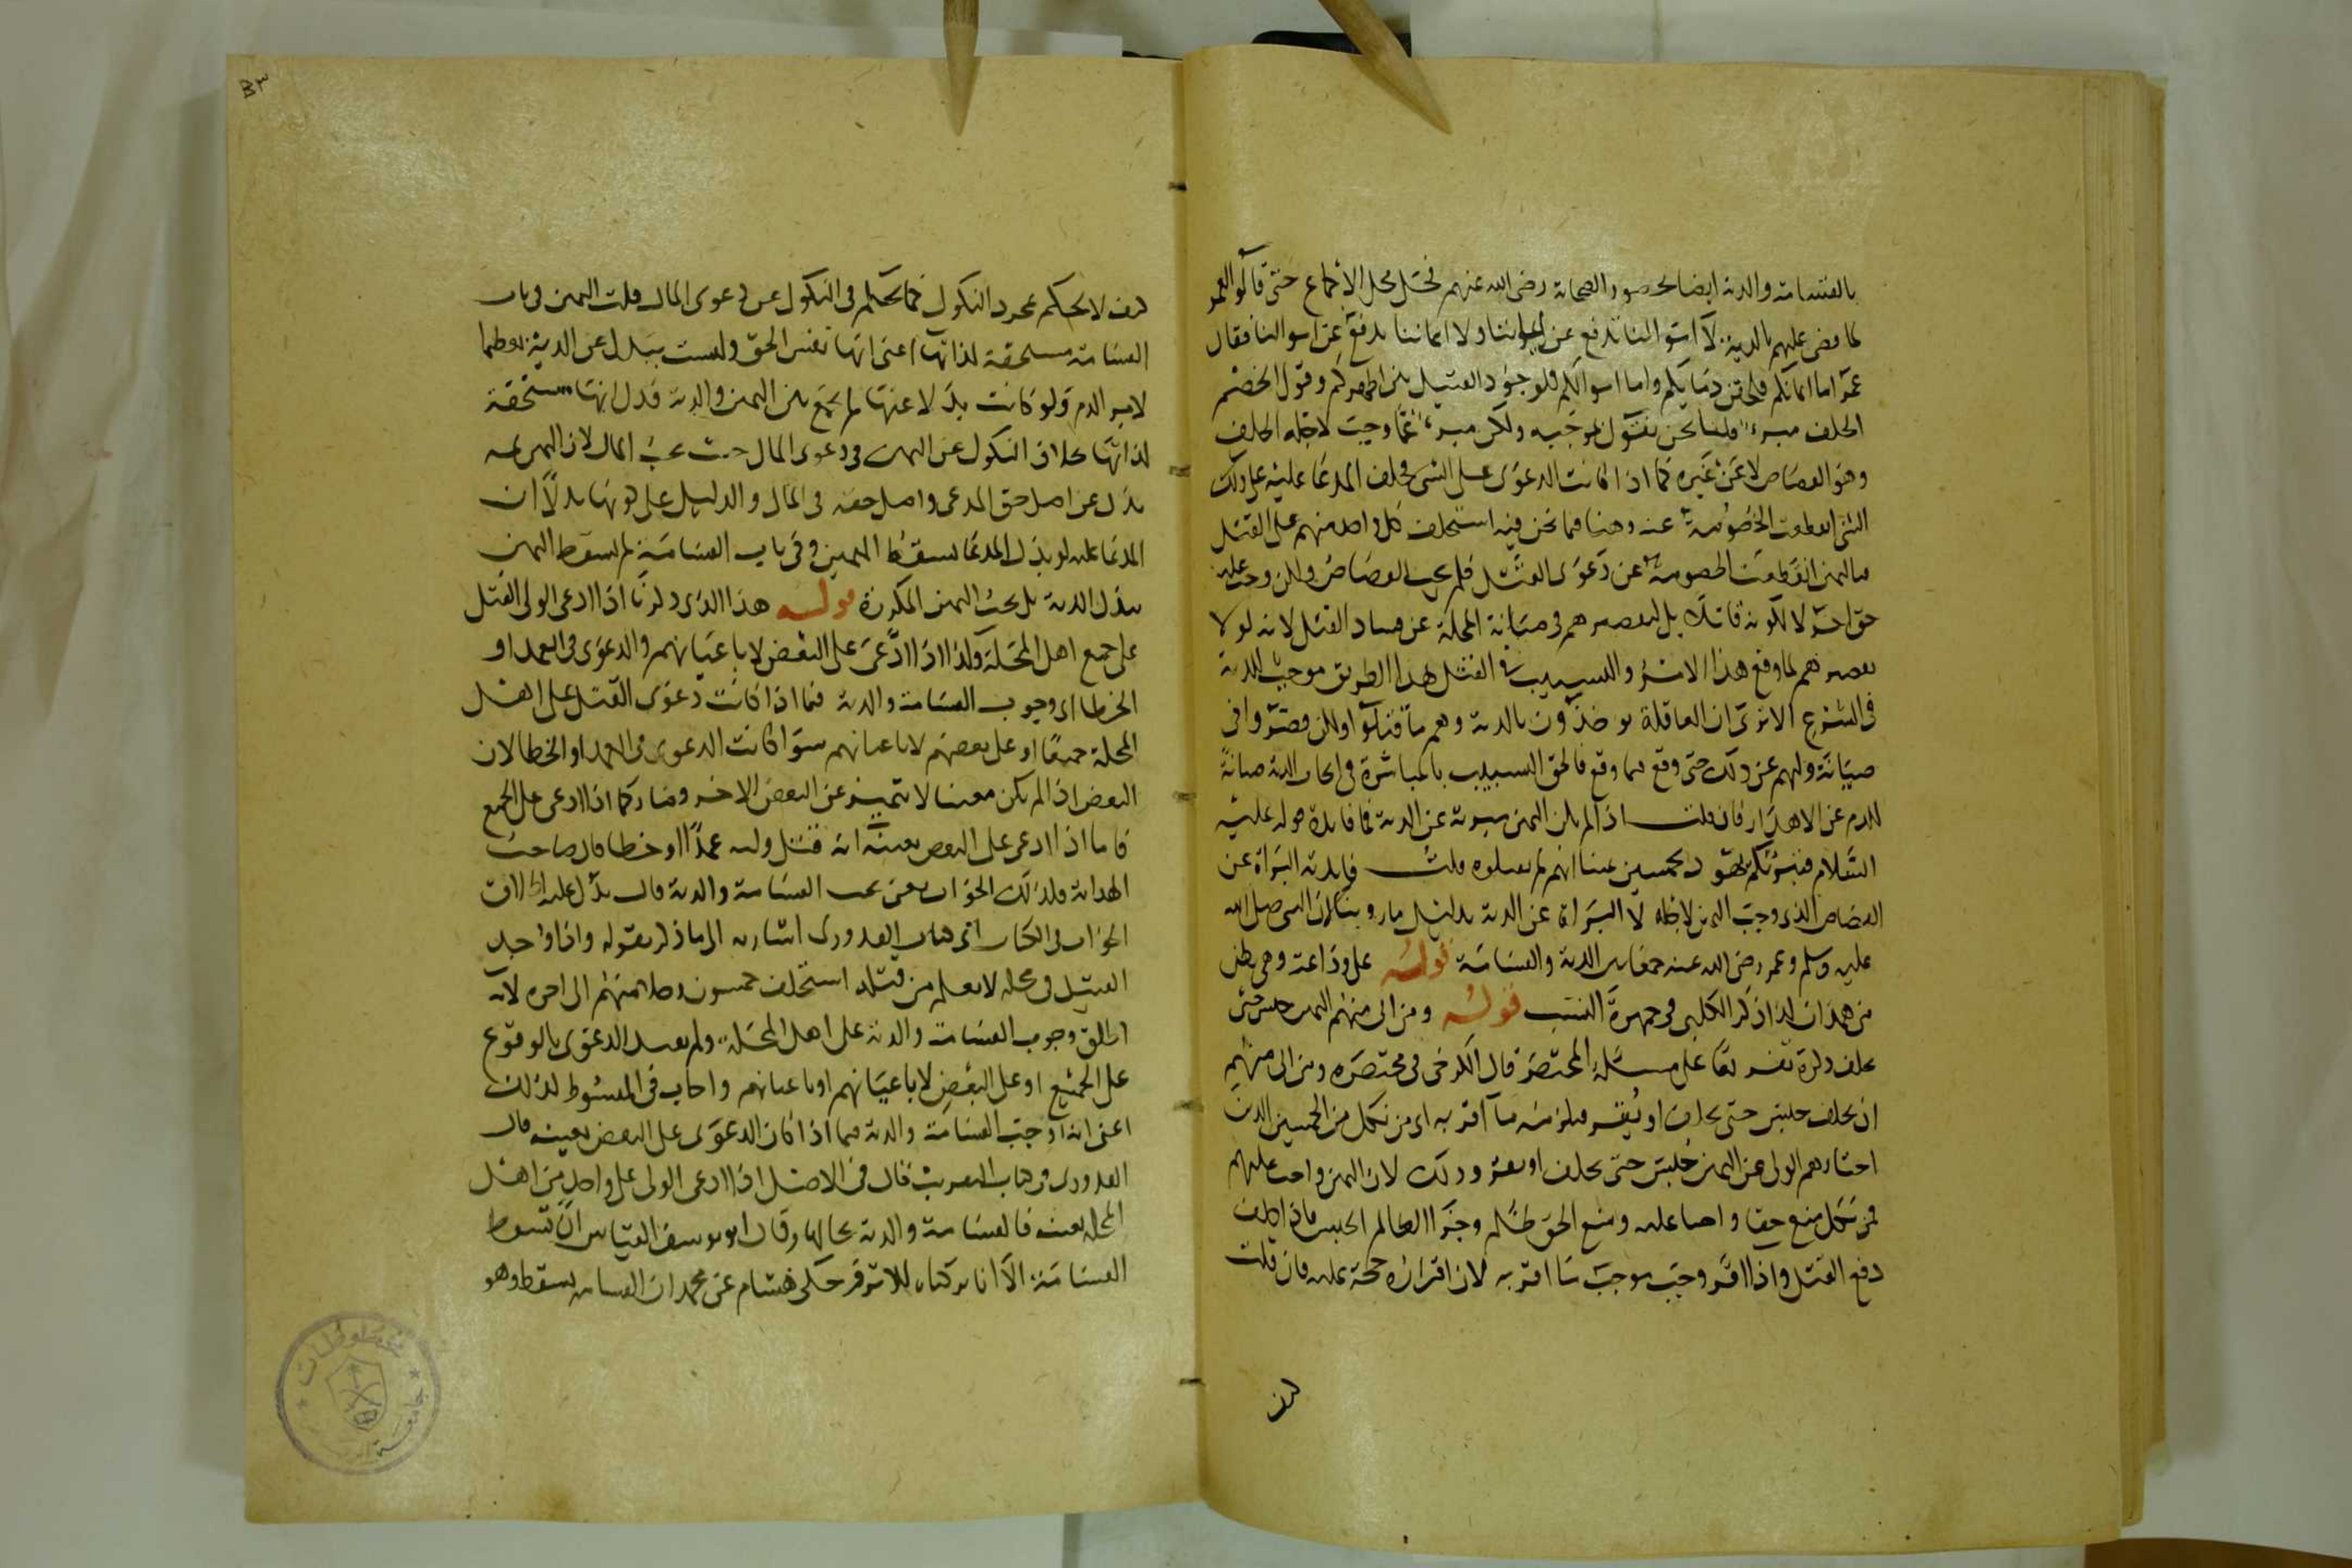 بالقسامة والدية ايضا بحضور الصحابة رضى الله عنهم فحل محل الاجماع حتى قالوا لعمر
لما قضى عليهم بالدية لا اموالنا تدفع عن ايماننا ولا ايماننا تدفع عن اموالنا فقال
عمر اما ايمانكم فلحقن دمايكم واما اموالكم فلوجود القتيل بين اظهركم وقول الخصم
الحلف مبرئ قلنا نحن نقول بموجبه ولكن مبرئ عما وجبت لاجله الحلف
وهو القصاص لا عن غيره كما اذا كانت الدعوى على الشى فحلف المدعا عليه على ذلك
الشى انقطعت الخصومة عنه وهنا فيما نحن فيه استحلف كل واحد منهم على القتل
فباليمين انقطعت الخصومة عن دعوى القتل فلم يجب القصاص ولكن وجبت عليه
حق اخر لا لكونه قاتلا بل لتقصيرهم فى صيانة المحلة عن فساد القتل لانه لولا
تقصيرهم لما وقع هذا الامر والتسبيب فى القتل بهذا الطريق موجب للدية
فى الشرع الا ترى ان العاقلة يواخذون بالدية وهم ما قتلوا ولكن قصروا فى
صيانة وليهم عن ذلك حتى وقع فيما وقع فالحق التسبيب بالمباشرة فى ايجاب الدية صيانة
للدم عن الاهدار فان قلت اذا لم يكن اليمين مبرئة عن الدية فما فايدة قوله عليه
السلام فتبرئكم يهود بخمسين يمينا انهم لم يقتلوه قلت فايدته البراة عن
القصاص الذى وجبت اليمين لاجله لا البراة عن الدية بدليل ما روينا ان النبى صلى الله
عليه وسلم وعمر رضى الله عنه جمعا بين الدية والقسامة قوله على وادعة وهى بطن
من همدان كذا ذكر الكلبى فى جمهرة النسب قوله ومن ابى منهم اليمين حبس حتى
يحلف ذكره تفريعا على مسئلة المختصر قال الكرخى فى مختصره ومن ابى منهم
ان يحلف حبس حتى يحلف او يقر فيلزمه ما اقر به اى من نكل من الخمسين الذين
اختارهم الولى عن اليمين حبس حتى يحلف او يقر وذلك لان اليمين واجب عليهم
فمن نكل منع حقا واجبا عليه ومنع الحق ظلم وجزا الظالم الحبس فاذا حلف
دفع القتل واذا اقر وجب موجب ما اقر به لان اقراره حجة عليه فان قلت
كيف
٣
كيف لا يحكم بمجرد النكول كما يحكم فى النكول عن دعوى المال قلت اليمين فى باب
القسامة مستحقة لذاتها اعنى انها نفس الحق وليست ببدل عن الدية تعظيما
لامر الدم ولو كانت بدلا عنها لم يجمع بين اليمين والدية فدل انها مستحقة
لذاتها بخلاف النكول عن اليمين فى دعوى المال حيث يجب المال لان اليمين ثمه
بدل عن اصل حق المدعى واصل حقه فى المال والدليل على كونها بدلا ان
المدعا عليه لو بذل المدعا سقط اليمين وفى باب القسامة لم يسقط اليمين
ببذل الدية بل يجب اليمين المكررة قوله هذا الذى ذكرنا اذا ادعى الولى القتل
على جميع اهل المحلة وكذا اذا ادعى على البعض لا باعيانهم والدعوى فى العمد او
الخطا اى وجوب القسامة والدية فيما اذا كانت دعوى القتل على اهل
المحلة جميعا او على بعضهم لا باعيانهم سوا كانت الدعوى فى العمد او الخطا لان
البعض اذا لم يكن معينا لا يتميز عن البعض الاخر وصار كما اذا ادعى على الجميع
فاما اذا ادعى على البعض بعينه انه قتل وليه عمدا او خطا قال صاحب
الهداية فكذلك الجواب يعنى يجب القسامة والدية قال يدل عليه اطلاق
الجواب فى الكتاب اى كتاب القدورى اشارة الى ما ذكر بقوله واذا وجد
القتيل فى محلة لا يعلم من قتله استحلف خمسون رجلا منهم الى اخره لانه
اطلق وجوب القسامة والدية على اهل المحلة ولم يقيد الدعوى بالوقوع
على الجميع او على البعض لا باعيانهم او باعيانهم واجاب فى المبسوط كذلك
اعنى انه اوجب القسامة والدية فيما اذا كان الدعوى على البعض بعينه قال
القدورى فى كتاب التقريب قال فى الاصل اذا ادعى الولى على واحد من اهل
المحلة بعينه فالقسامة والدية بحالها وقال ابو يوسف القياس ان تسقط
القسامة الا انا تركناه للاثر فحكى هشام عن محمد ان القسامة يسقط وهو
مخطوطات
جامعة